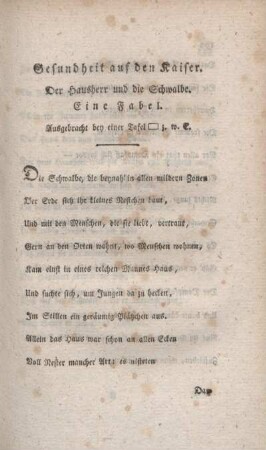 Gesundheit auf den Kaiser.
Der Hausherr und die Schwalbe.
Eine Fabel.
Ausgebracht bey einer Tafel ▭ z. w. E.
Die Schwalbe, die beynah' in allen mildern Zonen
Der Erde sich ihr kleines Nestchen baut,
Und mit den Menschen, die sie liebt, vertraut,
Gern an den Orten wohnt, wo Menschen wohnen,
Kam einst in eines reichen Mannes Haus,
Und suchte sich, um Jungen da zu hecken,
Im Stillen ein geräumig Plätzchen aus.
Allein das Haus war schon an allen Ecken
Voll Nester mancher Art; es nisteten